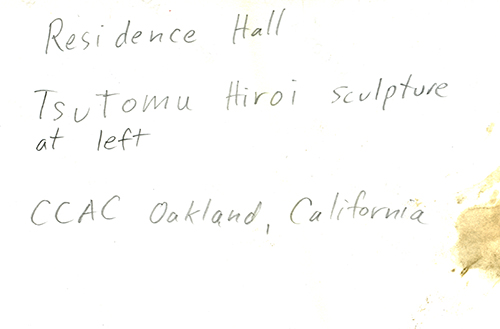 Residence Hall
Tsutomu Hiroi sculpture
at left
CCAC Oakland, California